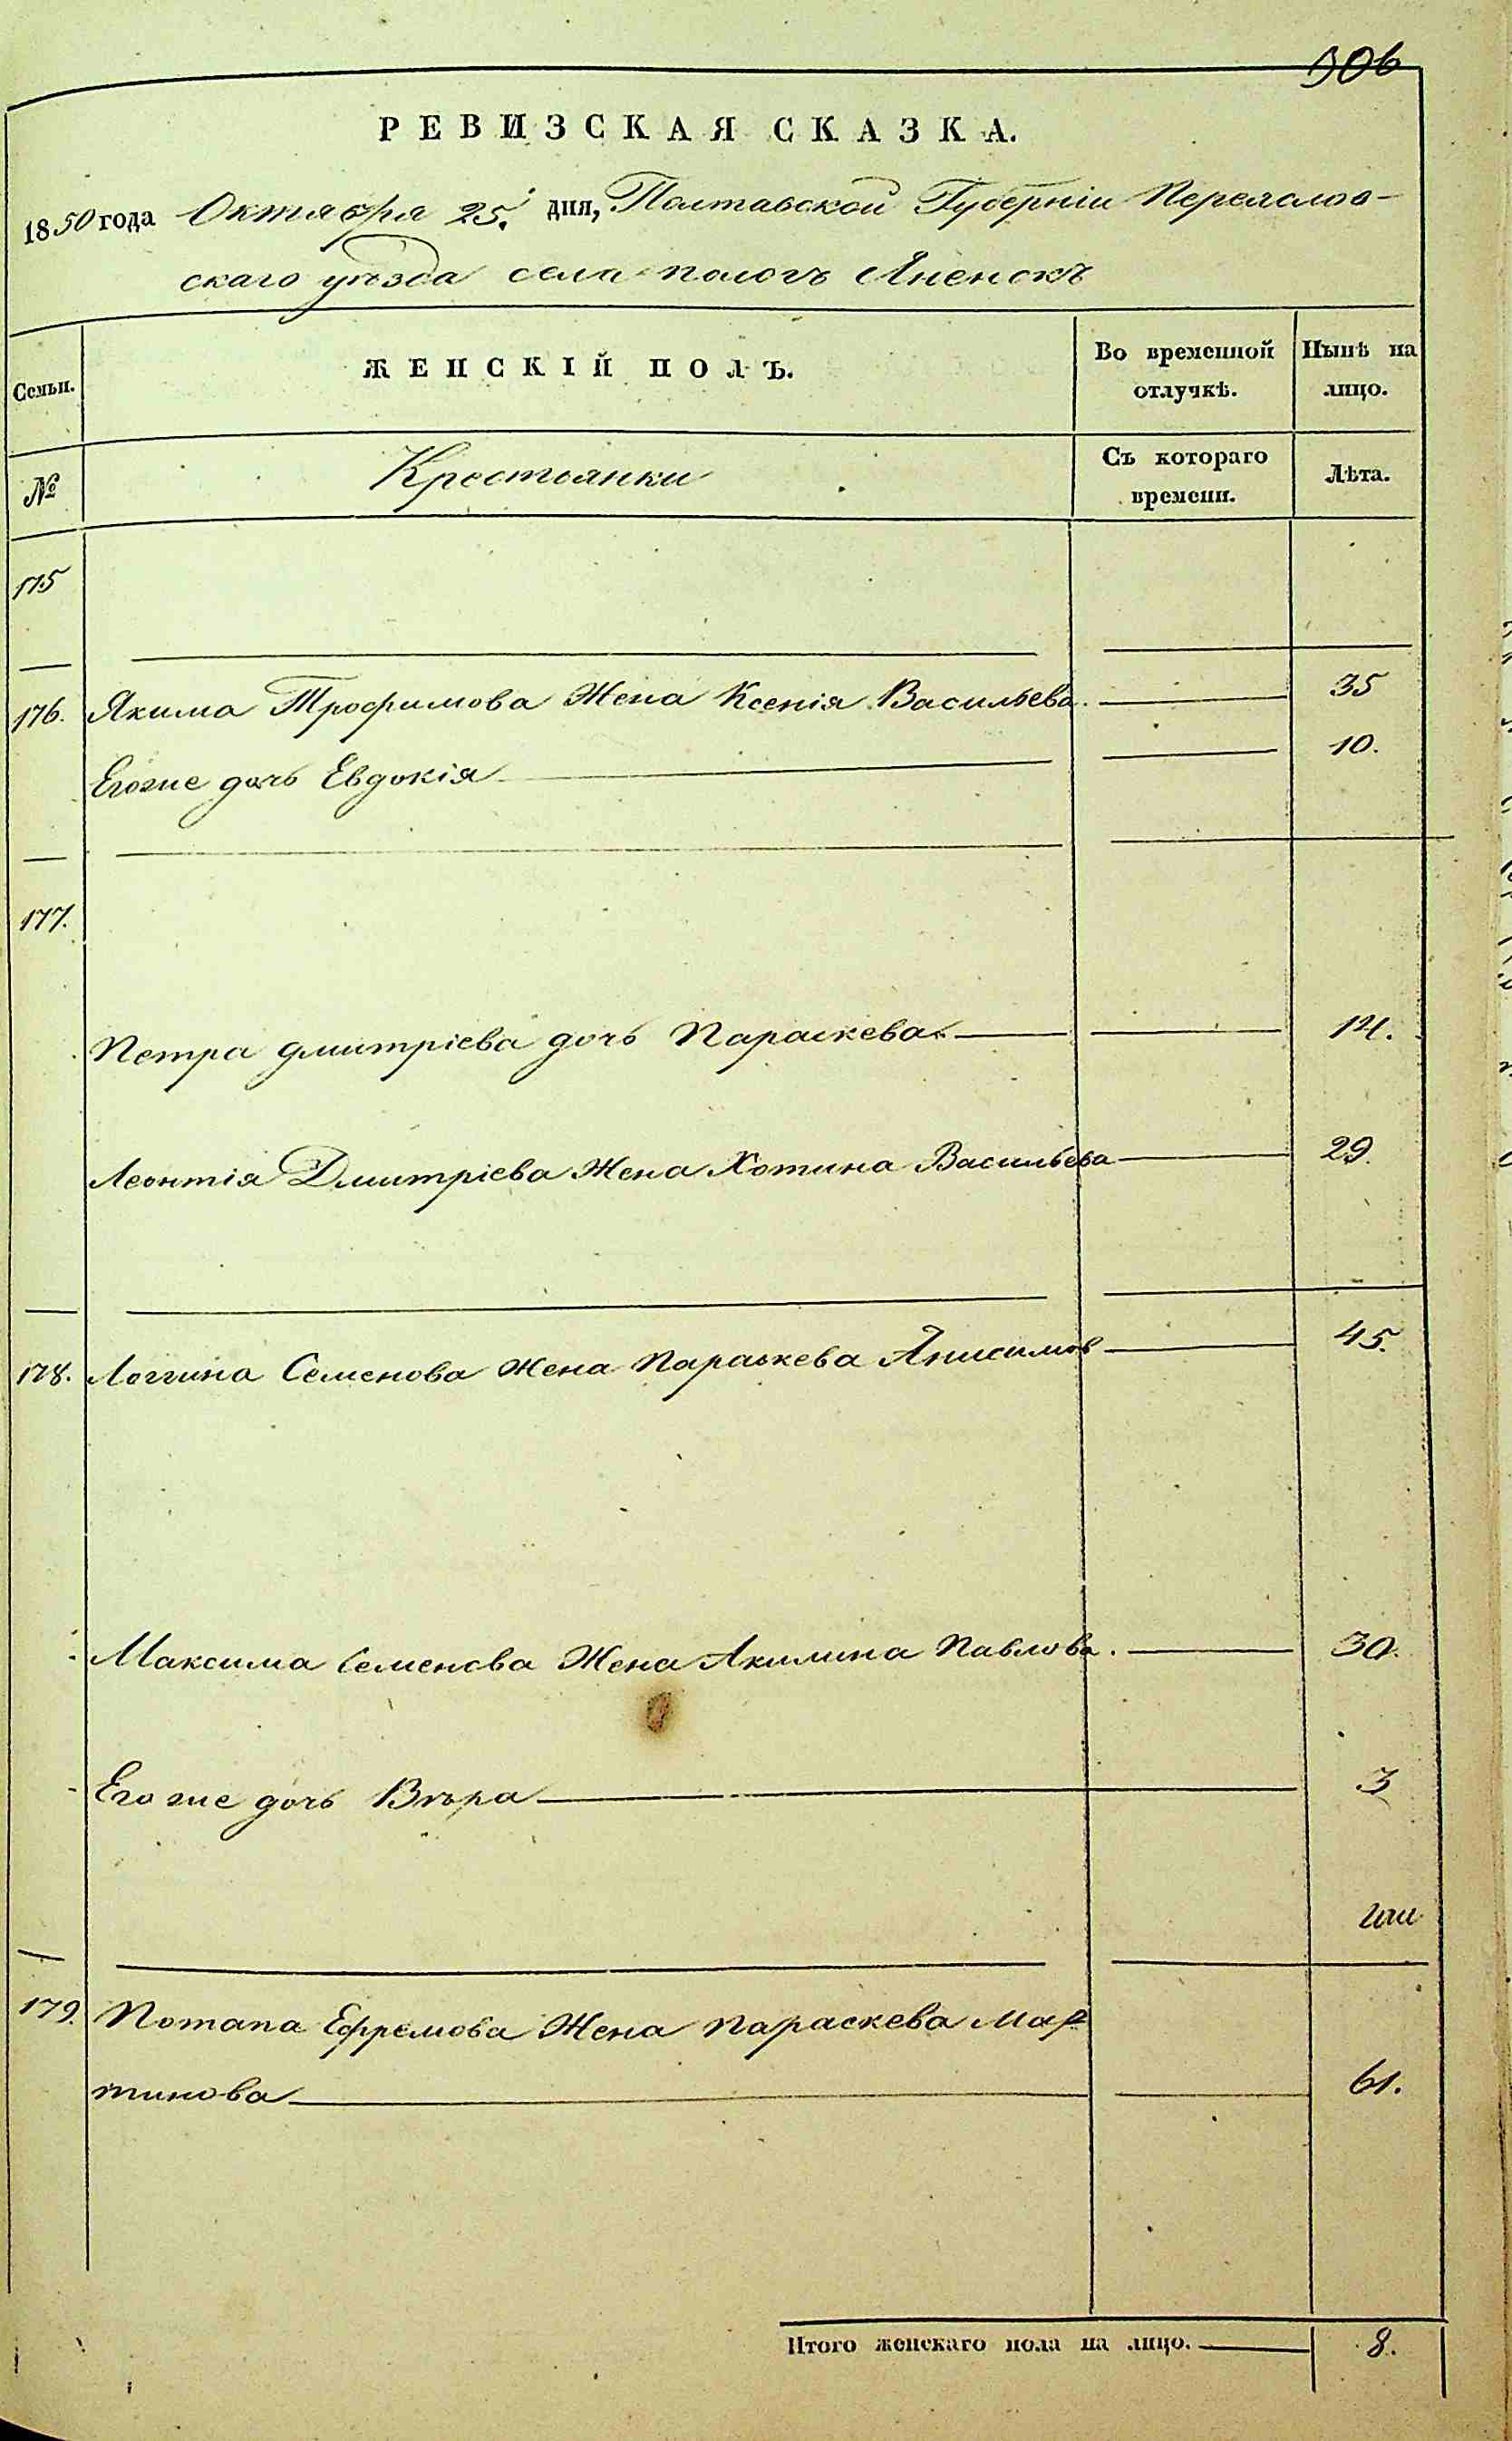 306
РЕВИЗСКАЯ СКАЗКА.
1850 года Октября 25. дня, Полтавской Губерніи Переяслов-
скаго уѣзда села пологъ Яненскъ
Семьи. ЖЕНСКІЙ ПОЛЪ. Во временной отлучкѣ. Нынѣ на лицо.
№ Крестьянки Съ котораго времени. Лѣта.
175
176. Якима Трофимова Жена Ксенія Васильева. 35
Егоже дочь Евдокія 10.
177.
Петра дмитріева дочь Параскева 14.
Леонтія Дмитріева Жена Хотина Васильева 29.
178. Логгина Семенова Жена Параскева Анисимов 45.
Максима Семенова Жена Акилина Павлова. 30.
Егоже дочь Вѣра 3
179. Потапа Ефремова Жена параскева Мар
тинова 61.
Итого женскаго пола на лицо. 8.